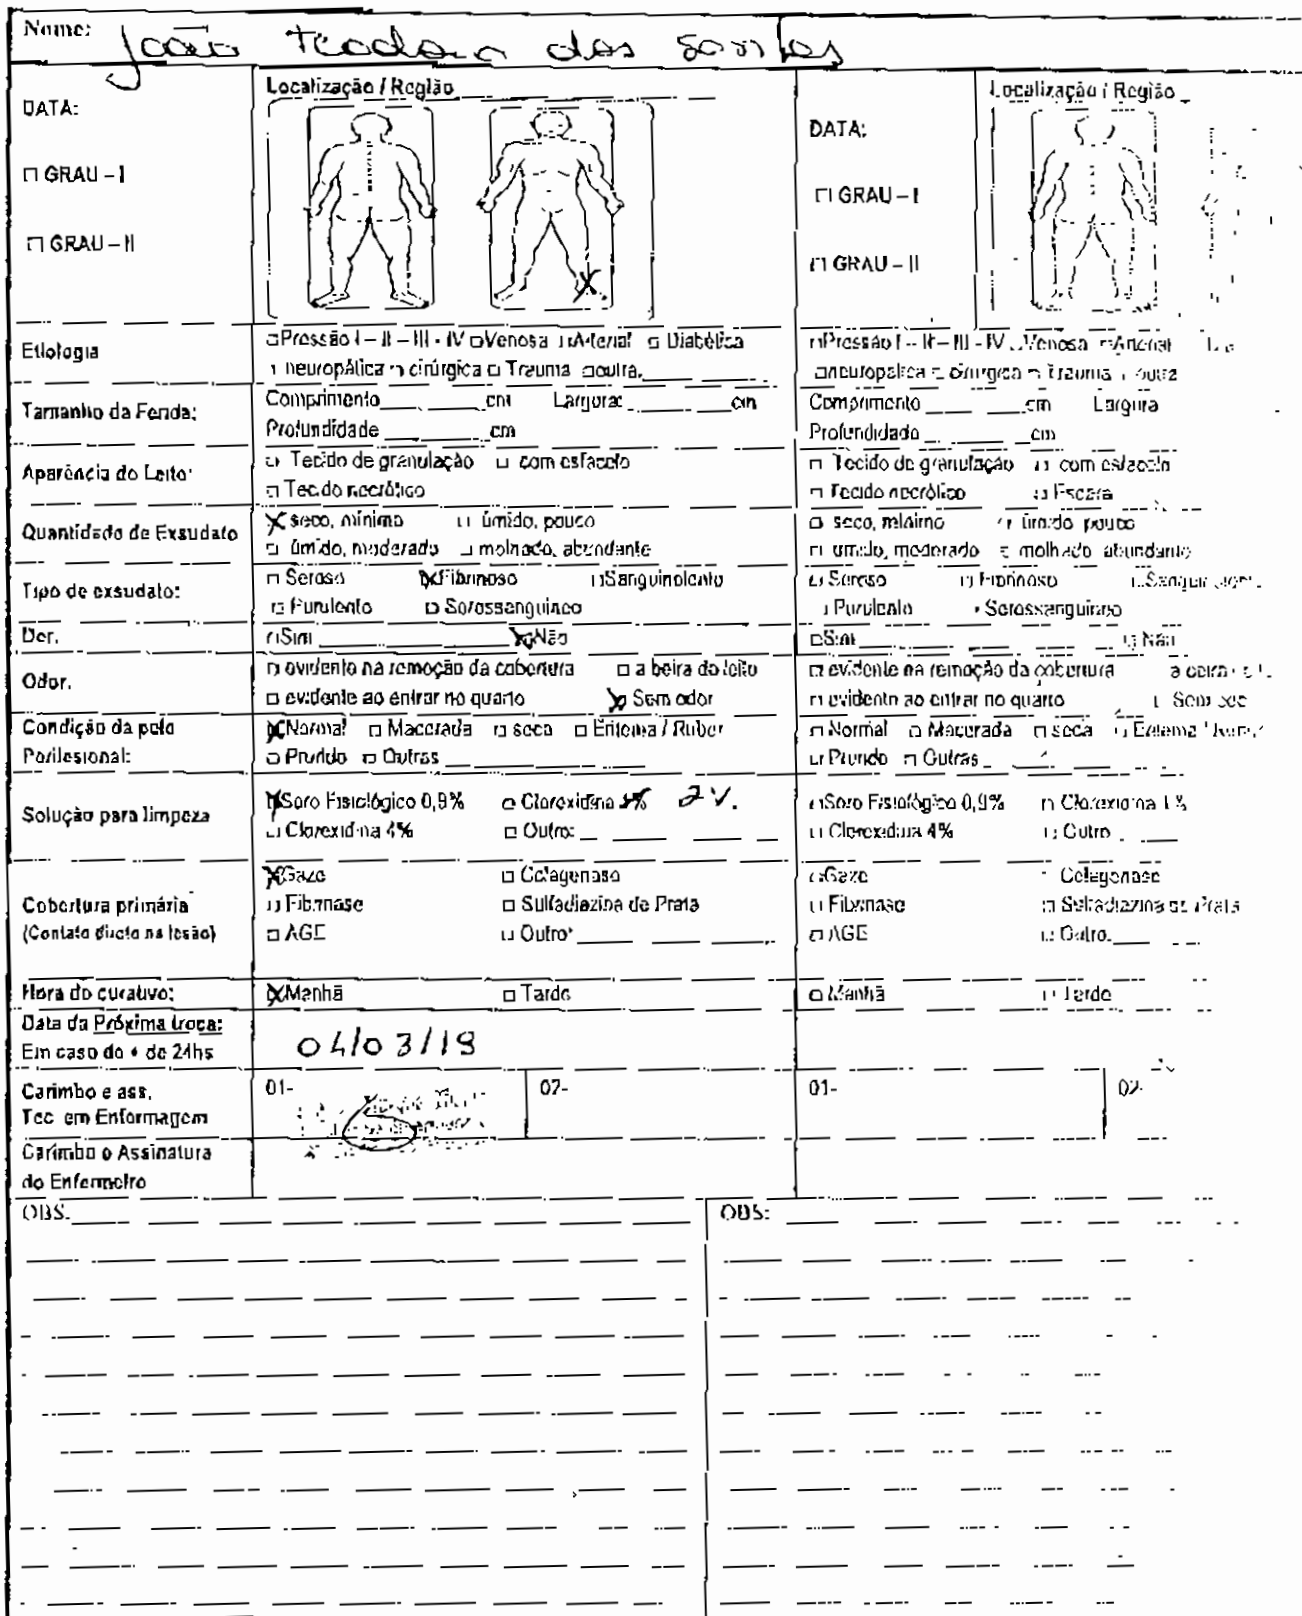 Nome: João teodoro dos santos
Localização / Região
DATA:
□ GRAU – I
□ GRAU – II
Localização / Região
DATA:
□ GRAU – I
□ GRAU – II
Etiologia
□ Pressão I – II – III - IV □ Venosa □ Arterial □ Diabética
□ neuropática □ cirúrgica □ Trauma □ outra.
□ Pressão I – II – III - IV □ Venosa □ Arterial
□ neuropática □ cirúrgica □ Trauma □ outra
Tamanho da Ferida:
Comprimento ____ cm Largura: ____ cm
Profundidade ____ cm
Comprimento ____ cm Largura
Profundidade ____ cm
Aparência do Leito:
□ Tecido de granulação □ com esfacelo
□ Tecido necrótico
□ Tecido de granulação □ com esfacelo
□ Tecido necrótico □ Escara
Quantidade de Exsudato
X seco, mínimo □ úmido, pouco
□ úmido, moderado □ molhado, abundante
□ seco, mínimo □ úmido, pouco
□ úmido, moderado □ molhado, abundante
Tipo de exsudato:
□ Seroso X Fibrinoso □ Sanguinolento
□ Purulento □ Serossanguineo
□ Seroso □ Fibrinoso
□ Purulento □ Serossanguineo
Dor.
□ Sim ____ X Não
□ Sim ____ □ Não
Odor.
□ evidente na remoção da cobertura □ a beira do leito
□ evidente ao entrar no quarto X Sem odor
□ evidente na remoção da cobertura
□ evidente ao entrar no quarto
Condição da pele
Perilesional:
X Normal □ Macerada □ seca □ Eritema / Rubor
□ Prurido □ Outras ____
□ Normal □ Macerada □ seca □ Eritema
□ Prurido □ Outras ____
Solução para limpeza
X Soro Fisiológico 0,9% □ Clorexidina 2%.
□ Clorexidina 4% □ Outro: ____
□ Soro Fisiológico 0,9% □ Clorexidina
□ Clorexidina 4% □ Outro ____
Cobertura primária
(Contato direto na lesão)
X Gaze □ Colagenase
□ Fibrinase □ Sulfadiazina de Prata
□ AGE □ Outro: ____
□ Gaze □ Colagenase
□ Fibrinase □ Sulfadiazina de Prata
□ AGE □ Outro. ____
Hora do curativo:
X Manhã □ Tarde
□ Manhã □ Tarde
Data da Próxima troca:
Em caso de + de 24hs
04/03/19
Carimbo e ass.
Tec em Enfermagem
01- 02-
01- 02-
Carimbo e Assinatura
do Enfermeiro
OBS. ____ OBS: ____